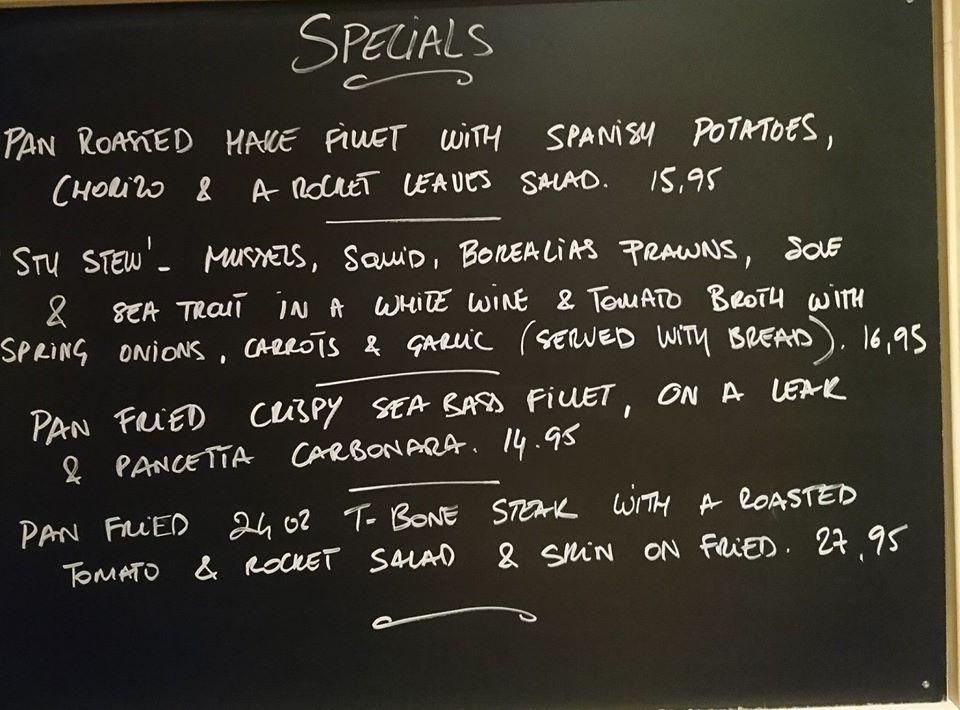 SPECIALS
PAN ROASTED HAKE FILLET WITH SPANISH POTATOES,
CHORIZO & A ROCKET LEAVES SALAD. 15,95
'STU STEW' - MUSSELS, SQUID, BOREALIAS PRAWNS, SOLE
& SEA TROUT IN A WHITE WINE & TOMATO BROTH WITH
SPRING ONIONS, CARROTS & GARLIC (SERVED WITH BREAD). 16,95
PAN FRIED CRISPY SEA BASS FILLET, ON A LEAK
& PANCETTA CARBONARA. 14.95
PAN FRIED 24 OZ T-BONE STEAK WITH A ROASTED
TOMATO & ROCKET SALAD & SKIN ON FRIED. 27,95